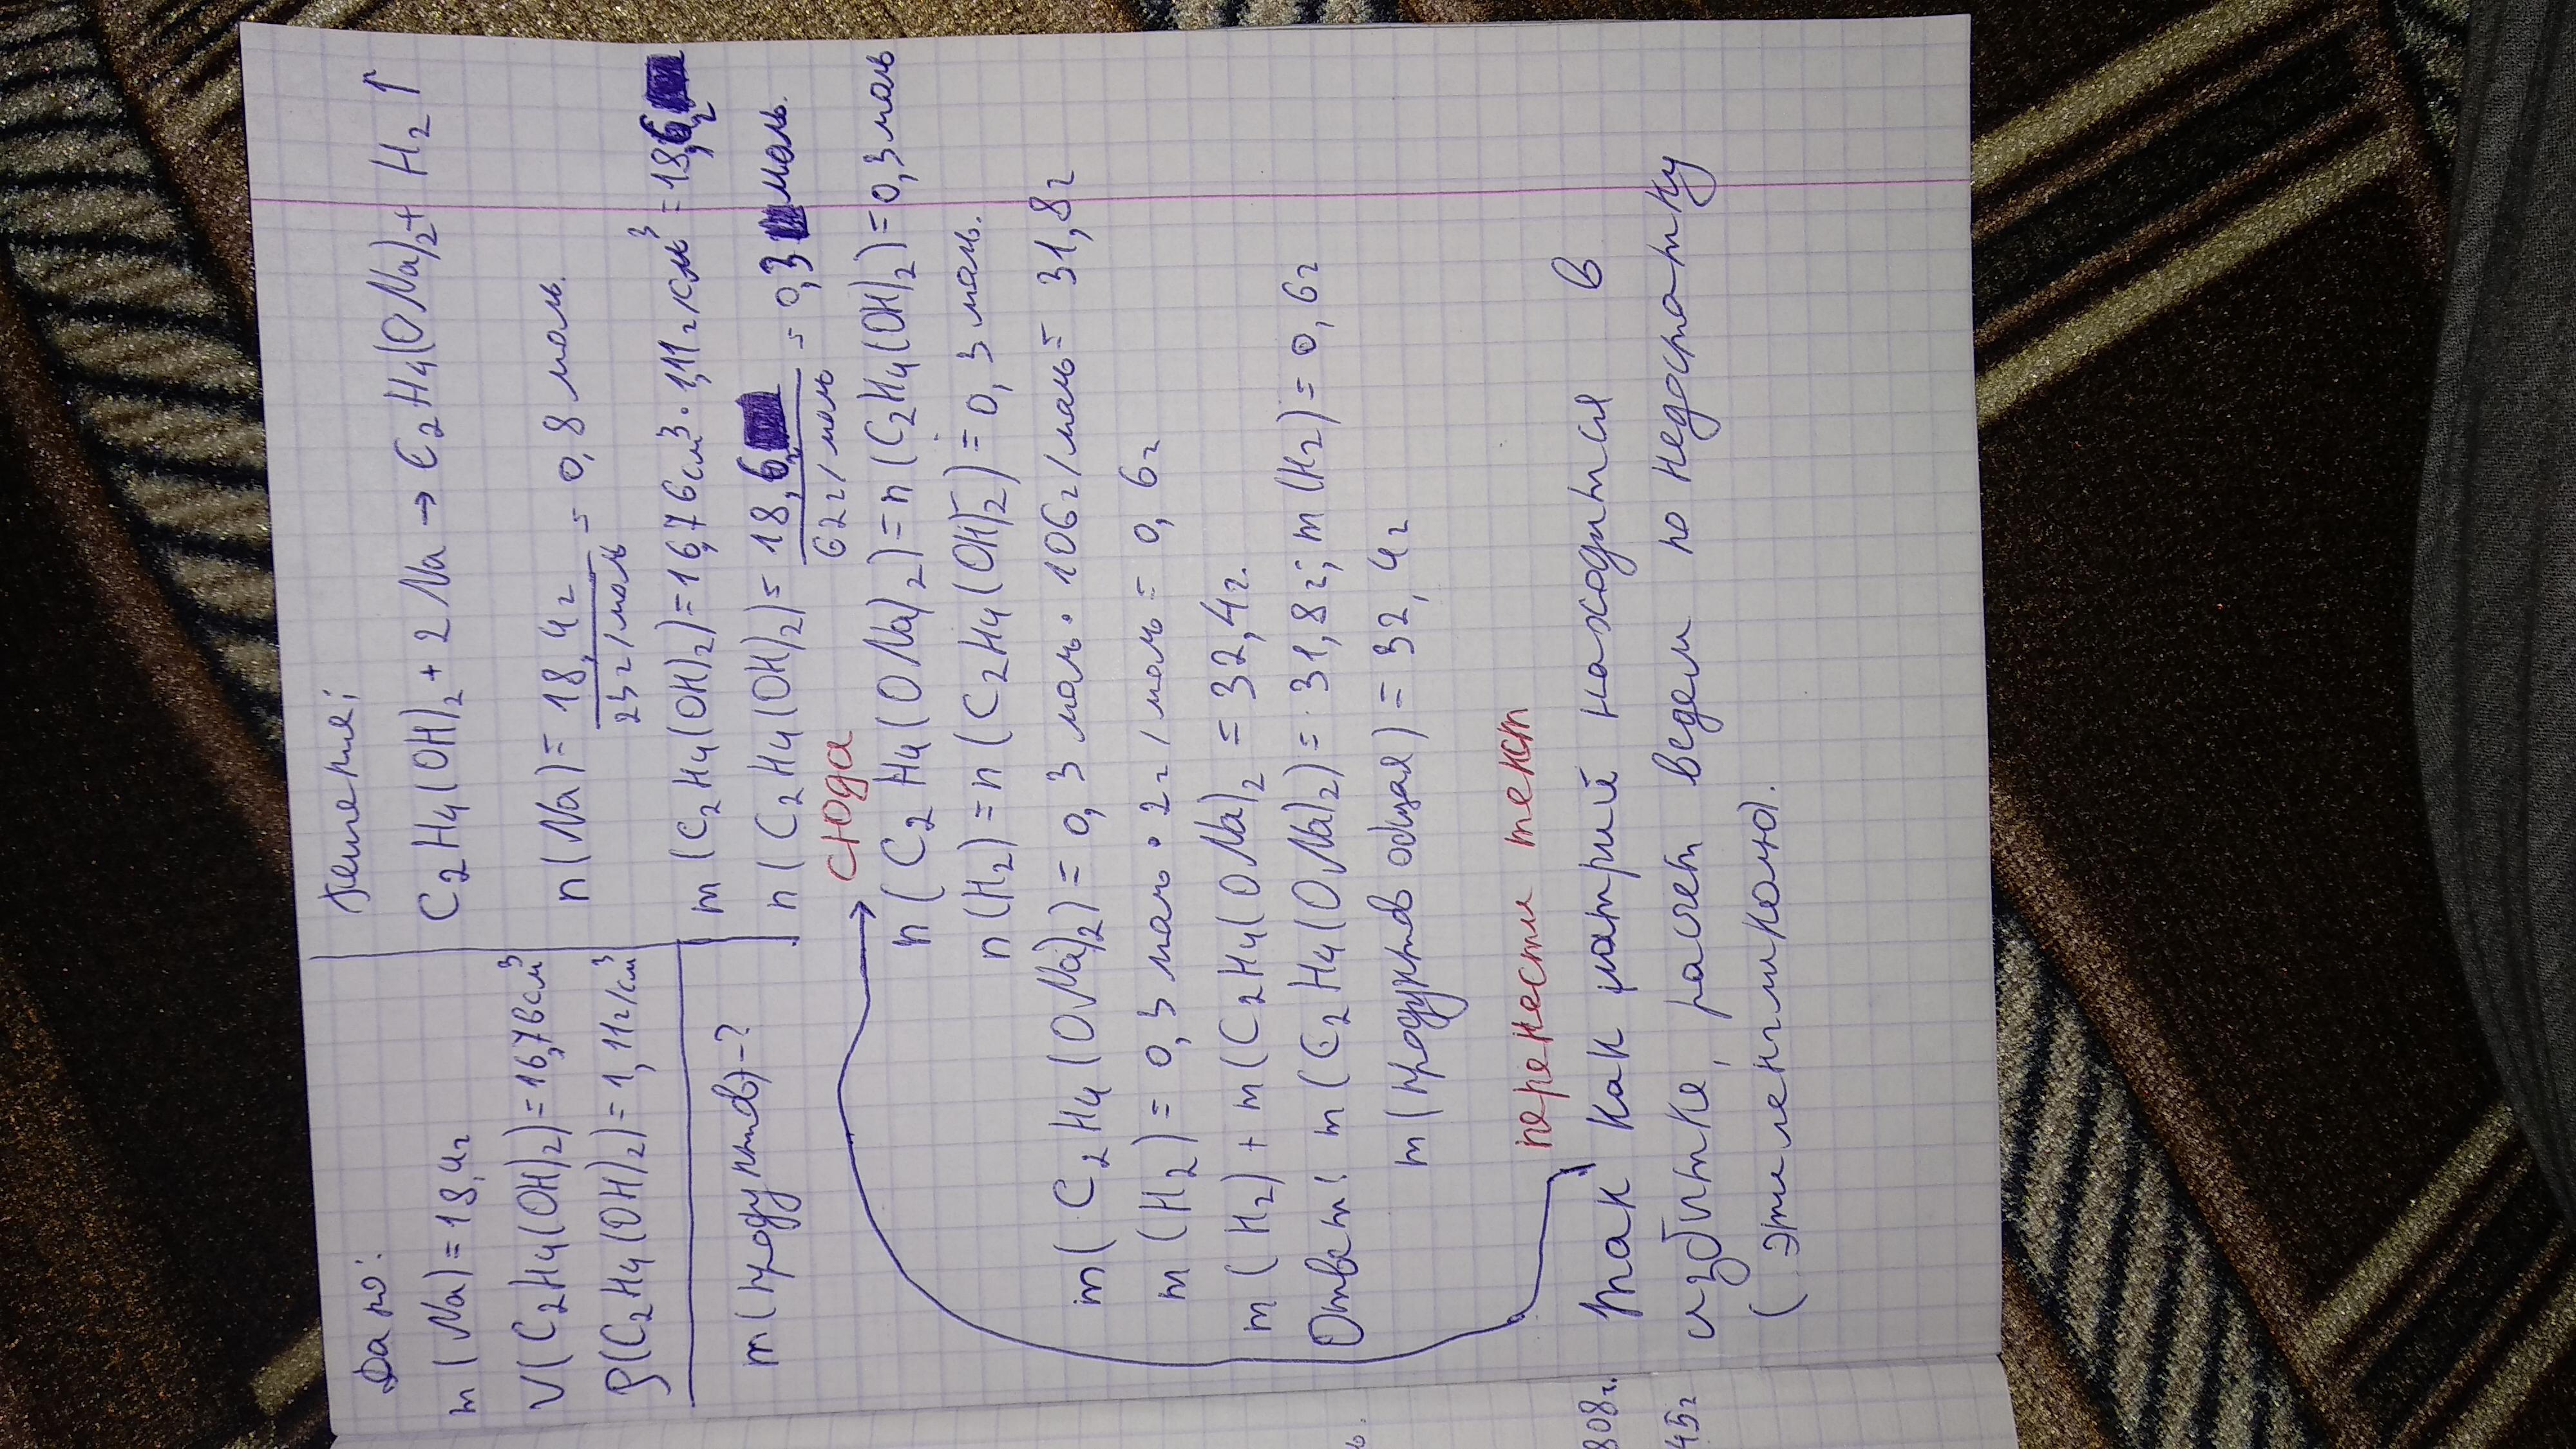 Дано:
m(Na)=18,4г
V(C2H4(OH)2)=16,76см³
ρ(C2H4(OH)2)=1,11г/см³
m(продуктов)-?
Решения:
C2H4(OH)2+2Na→C2H4(ONa)2+H2↑
n(Na)=18,4г/23г/моль=0,8моль.
m(C2H4(OH)2)=16,76см³·1,11г/см³=18,6г
n(C2H4(OH)2)=18,6г/62г/моль=0,3моль.
сюда
n(C2H4(ONa)2)=n(C2H4(OH)2)=0,3моль
n(H2)=n(C2H4(OH)2)=0,3моль.
m(C2H4(ONa)2)=0,3моль·106г/моль=31,8г
m(H2)=0,3моль·2г/моль=0,6г
m(H2)+m(C2H4(ONa)2=32,4г.
Ответ: m(C2H4(ONa)2)=31,8г; m(H2)=0,6г
m(продуктов общая)=32,4г
перенести текст
так как натрий находится в
избытке, расчет ведем по недостатку
(этиленгликолю).
808г.
45г